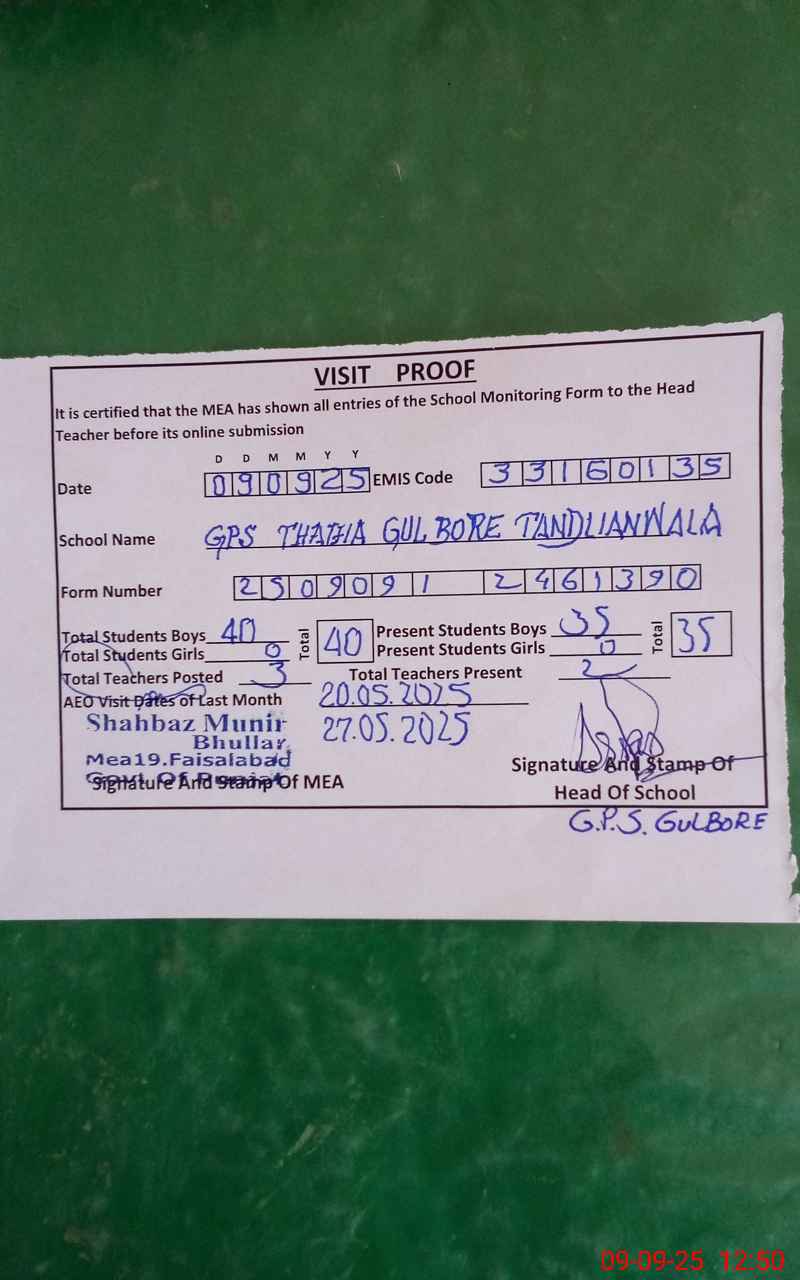 VISIT PROOF
It is certified that the MEA has shown all entries of the School Monitoring Form to the Head
Teacher before its online submission
D D M M Y Y
Date 090925 EMIS Code 33160135
School Name GPS THATHA GUL BORE TANDLIANWALA
Form Number 2509091 2461390
Total Students Boys 40 Total 40 Present Students Boys 35 Total 35
Total Students Girls 0 Present Students Girls 0
Total Teachers Posted 3 Total Teachers Present 2
AEO Visit Dates of Last Month 20.05.2025
27.05.2025
Shahbaz Munir
Bhullar
Mea19.Faisalabad
Govt. Of Punjab
Signature And Stamp Of MEA
Signature And Stamp Of
Head Of School
G.P.S. GULBORE
09-09-25 12:50